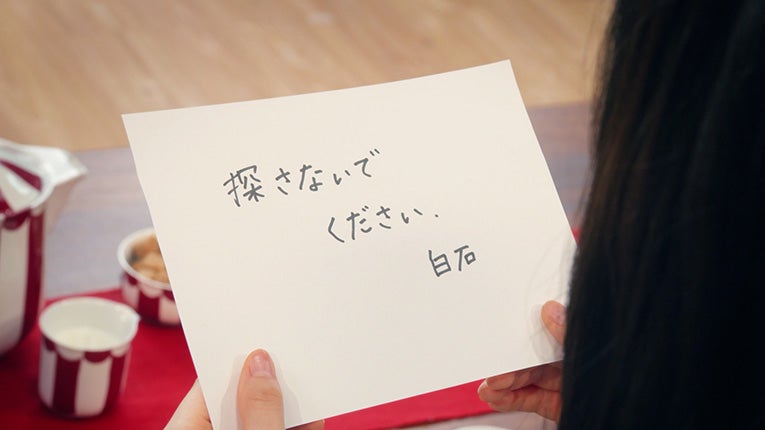 探さないで
ください.
白石